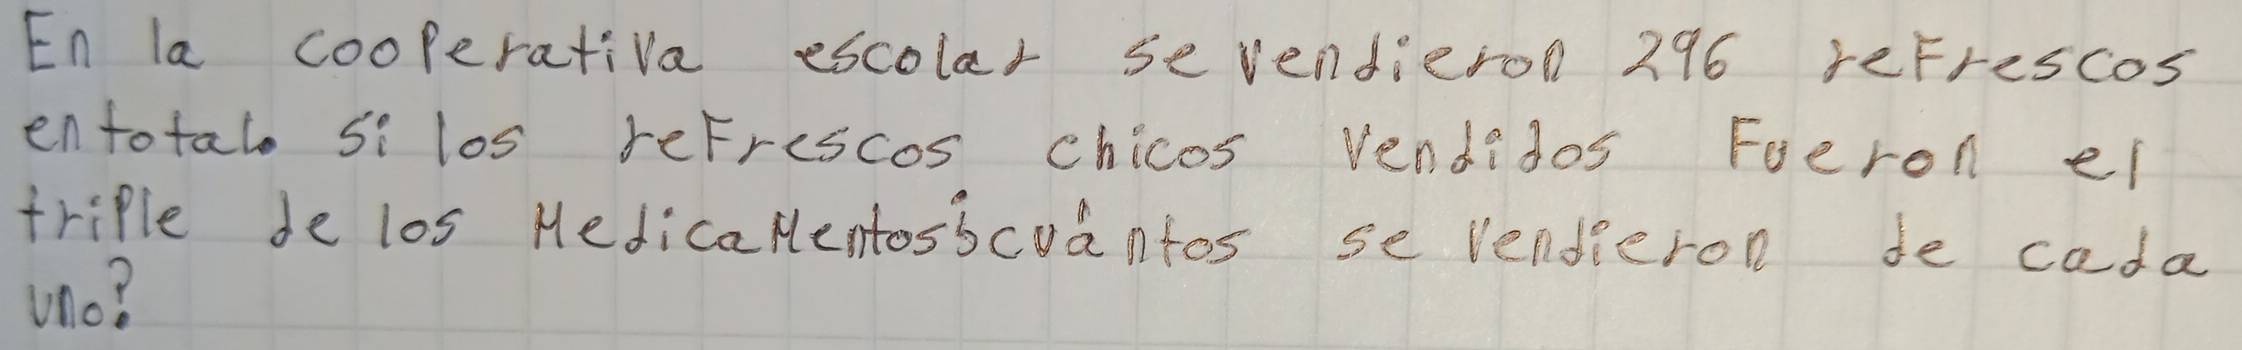 En la cooperativa escolar se vendieron 296 refrescos
en total. Si los refrescos chicos vendidos Fueron el
triple de los Medicamentos ¿cuántos se vendieron de cada
uno?